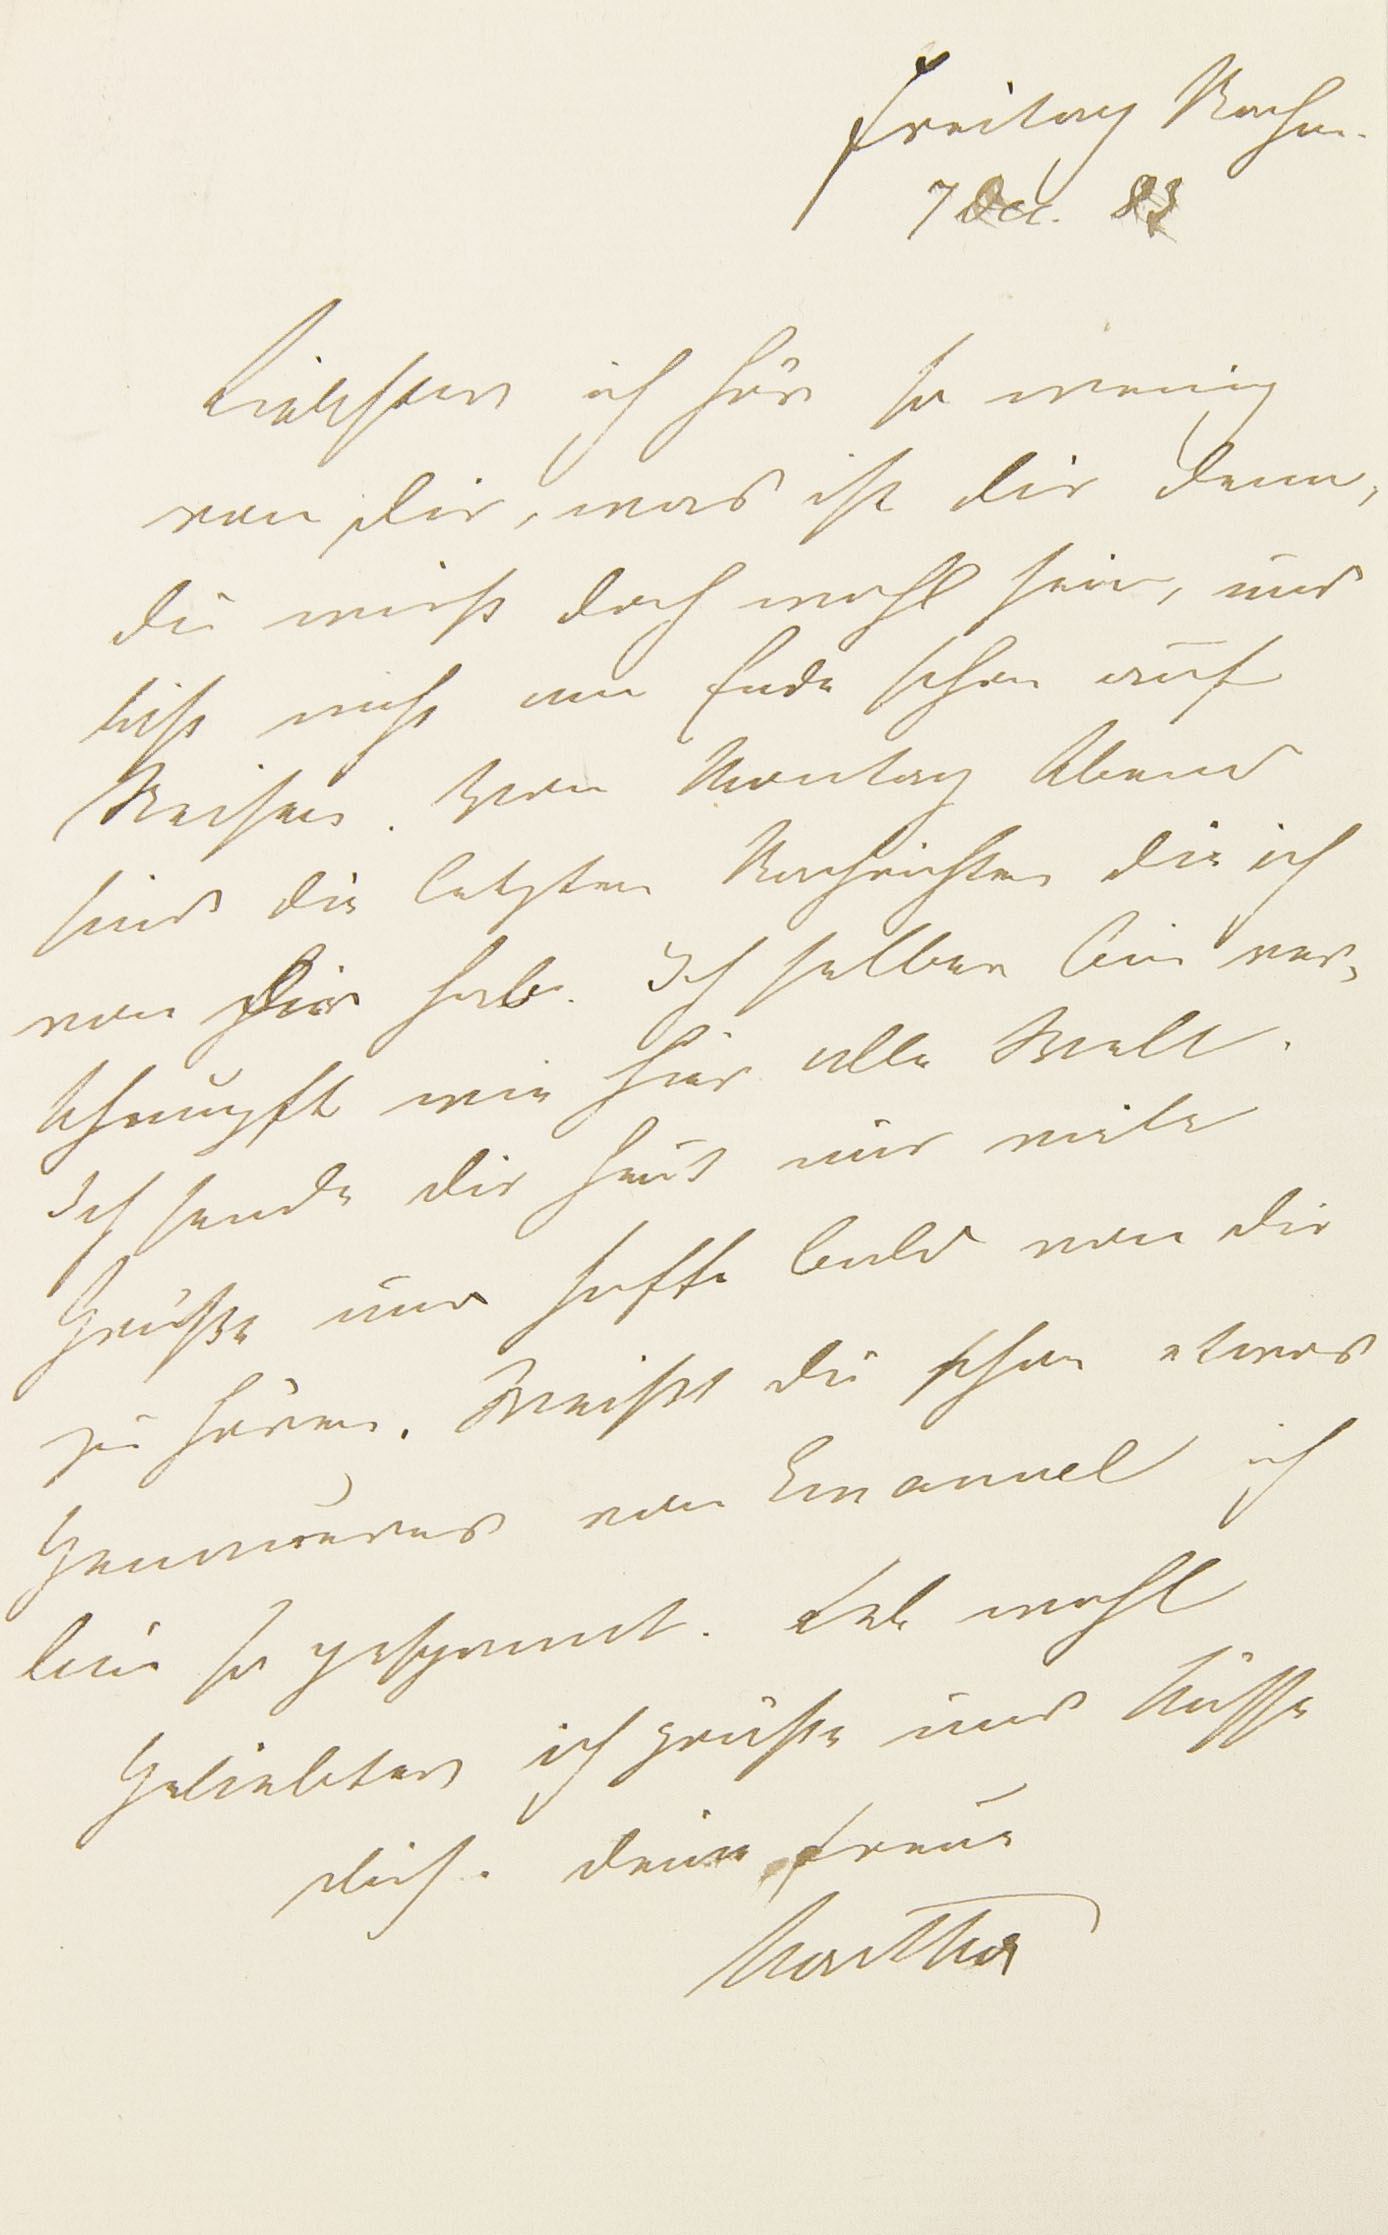 Freitag Nachm.
7 Dec. 83
Liebster ich hör so wenig
von Dir, was ist Dir denn,
Du wirst doch wohl sein, und
bist nicht am Ende schon auf
Reisen. Von Montag Abend
sind die letzten Nachrichten die ich
von Dir hab. Ich selber bin ver-
schnupft wie hier alle Welt.
Ich sende Dir heut nur viele
Grüße und hoffe bald von Dir
zu hören. Weißt Du schon etwas
Genaueres von Emanuel ich
bin so gespannt. Leb wohl
Geliebter ich grüße und küsse
Dich. Deine treue
Martha